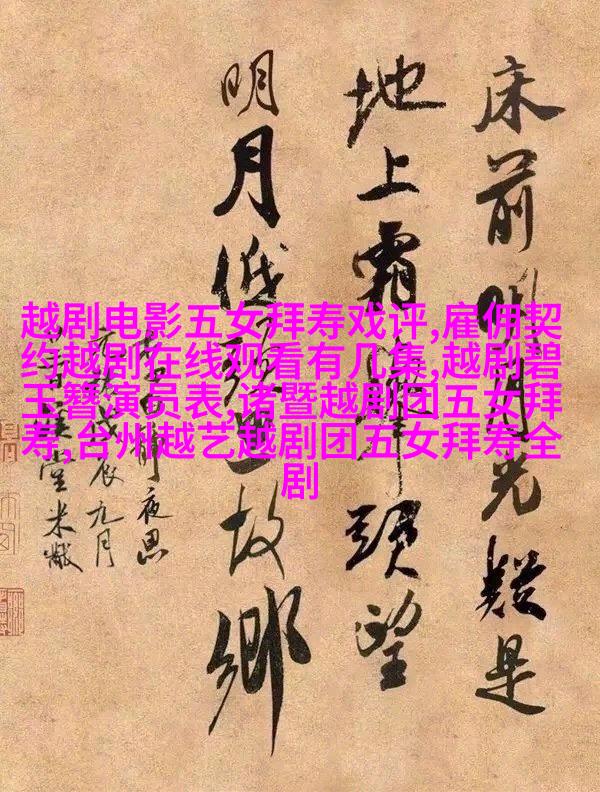 越剧电影五女拜寿戏评,雇佣契
约越剧在线观看有几集,越剧碧
玉簪演员表,诸暨越剧团五女拜
寿,台州越艺越剧团五女拜寿全
剧
床前明月光疑是
地上霜舉頭望
明月低頭思故鄉
夜思
戊辰九月
室米黻